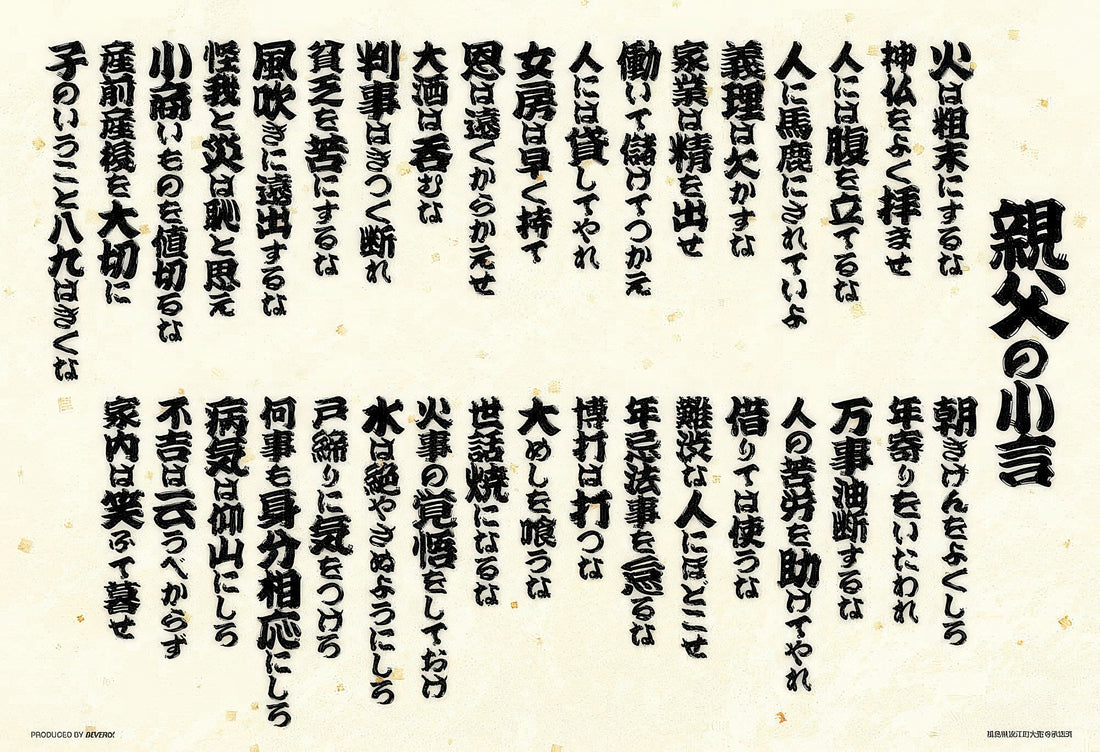 親父の小言
火は粗末にするな
神仏をよく拝ませ
人には腹を立てるな
人に馬鹿にされていよ
義理は欠かすな
家業は精を出せ
働いて儲けてつかえ
人には貸してやれ
女房は早く持て
恩は遠くからかえせ
大酒は呑むな
判事はきつく断れ
貧乏を苦にするな
風吹きに遠出するな
怪我と災は恥と思え
小商いものを値切るな
産前産後を大切に
子のいうこと八九はきくな
朝きげんをよくしろ
年寄りをいたわれ
万事油断するな
人の苦労を助けてやれ
借りては使うな
難渋な人にほどこせ
年忌法事を忌るな
博打は打つな
大めしを喰うな
世話焼になるな
火事の覚悟をしておけ
水は絶やさぬようにしろ
戸締りに気をつけろ
何事も身分相応にしろ
病気は仰山にしろ
不吉は云うべからず
家内は笑ふて暮せ
PRODUCED BY DEVERO!